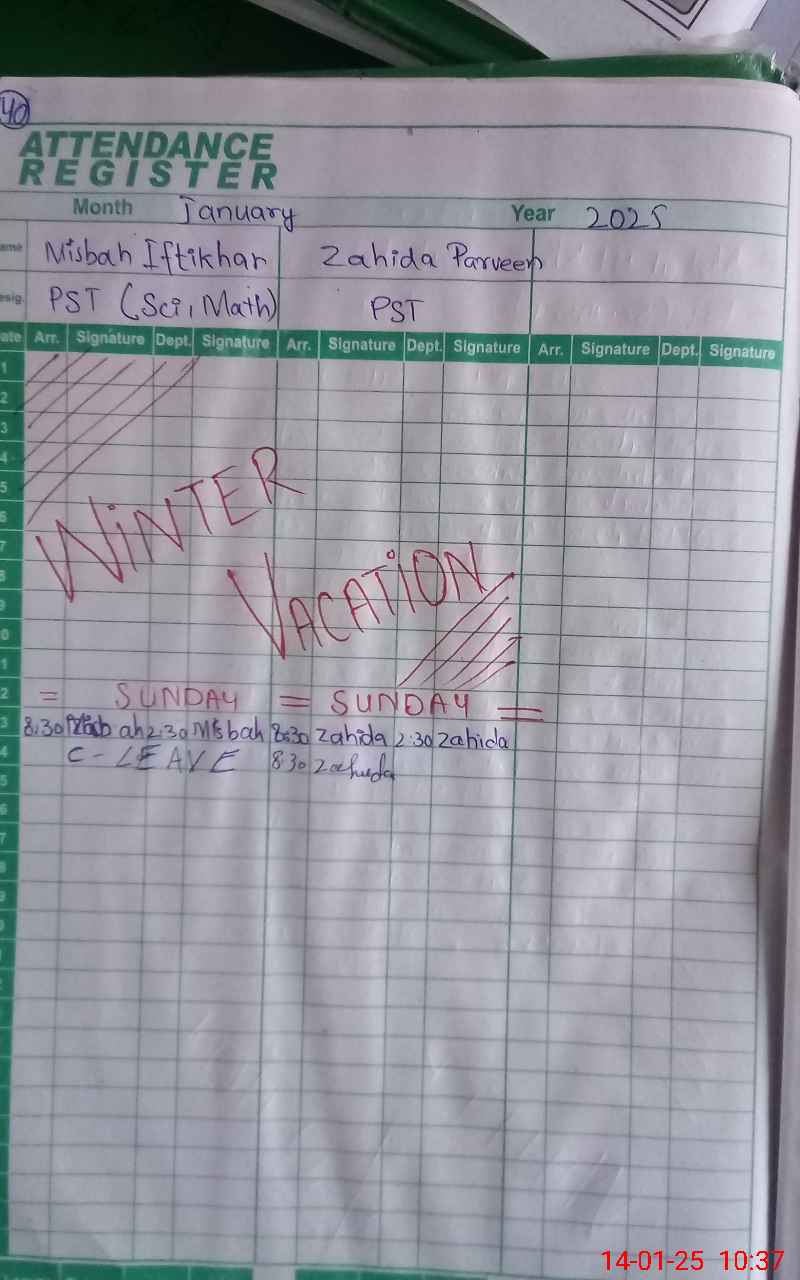 40
ATTENDANCE
REGISTER
Month January Year 2025
ame Misbah Iftikhar Zahida Parveen
esig. PST (Sci, Math) PST
ate Arr. Signature Dept. Signature Arr. Signature Dept. Signature Arr. Signature Dept. Signature
1
2
3
4
5
6
WINTER
7
8
VACATION
9
0
1
2 = SUNDAY = SUNDAY =
3 8:30 Misbah 2:30 Misbah 8:30 Zahida 2:30 Zahida
4 C-LEAVE 8:30 Zahida
5
6
7
8
9
14-01-25 10:37